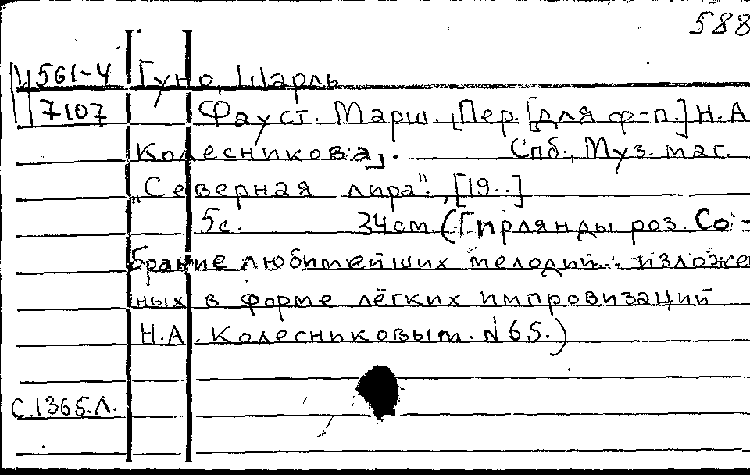 588
М 561-4 Гуно, Шарль
7107 Фауст. Марш. [Пер. [для ф-п.] Н.А.
Колесникова]. Спб., Муз. маг.
„Северная лира“, [19..]
5с. 34см (Гирлянды роз. Со-
брание любимейших мелодий.. изложен
ных в форме лёгких импровизаций
Н.А. Колесниковым. №65.)
С.1365.Л.